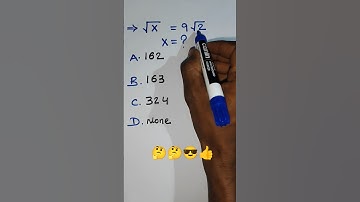 ⇒ √x = 9√2
x = ?
A. 162
B. 163
C. 324
D. None